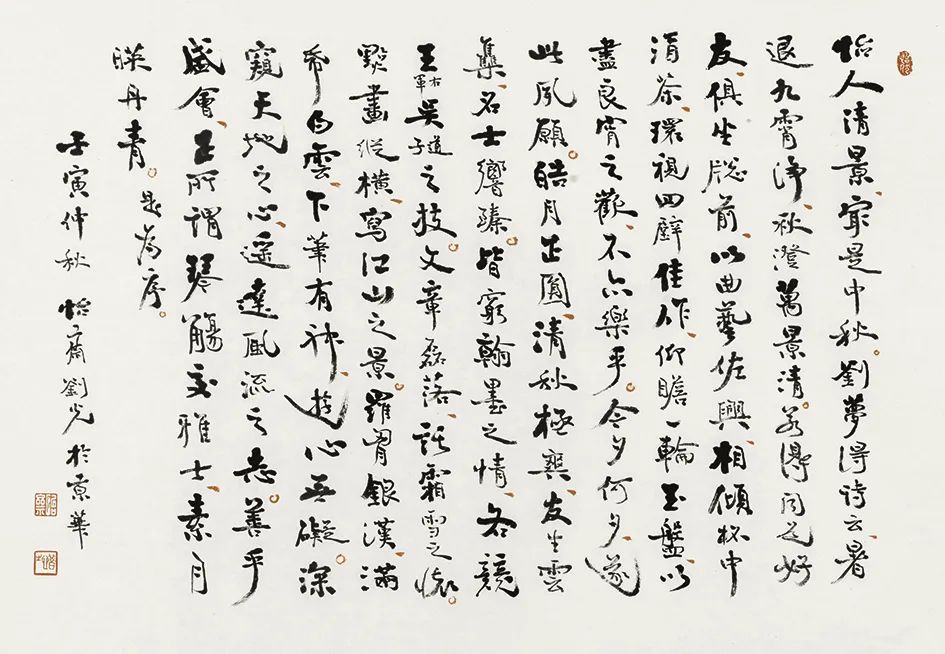 怡人清景、宜是中秋。劉夢得詩云、暑
退九霄淨、秋澄萬景清。若得同是好
友、俱坐牕前、以曲藝佐興、相傾杯中
清茶、環視四壁佳作、仰瞻一輪玉盤、以
盡良宵之歡、不亦樂乎。今夕何夕、遂
此夙願。皓月正圓、清秋極爽、友生雲
集、名士響臻。皆窮翰墨之情、各競
王右軍吳道子之技。文章磊落、託霜雪之懷。
點畫縱橫、寫江山之景。羅胷銀漢、滿
希白雲、下筆有神、遊心無礙。深
窺天地之心、遥達風流之志。善乎
盛會、正所謂琴觴交雅士、素月
暎丹青。是為序。
壬寅仲秋 怡齋劉光於京華